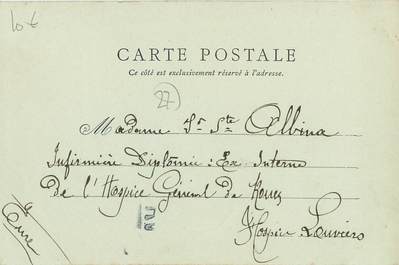 10 €
CARTE POSTALE
Ce côté est exclusivement réservé à l'adresse.
27
Madame Sr Ste Albina
Infirmière Diplômée : Ex Interne
De l'Hospice Général de Rouen
Hospice Louviers
Eure